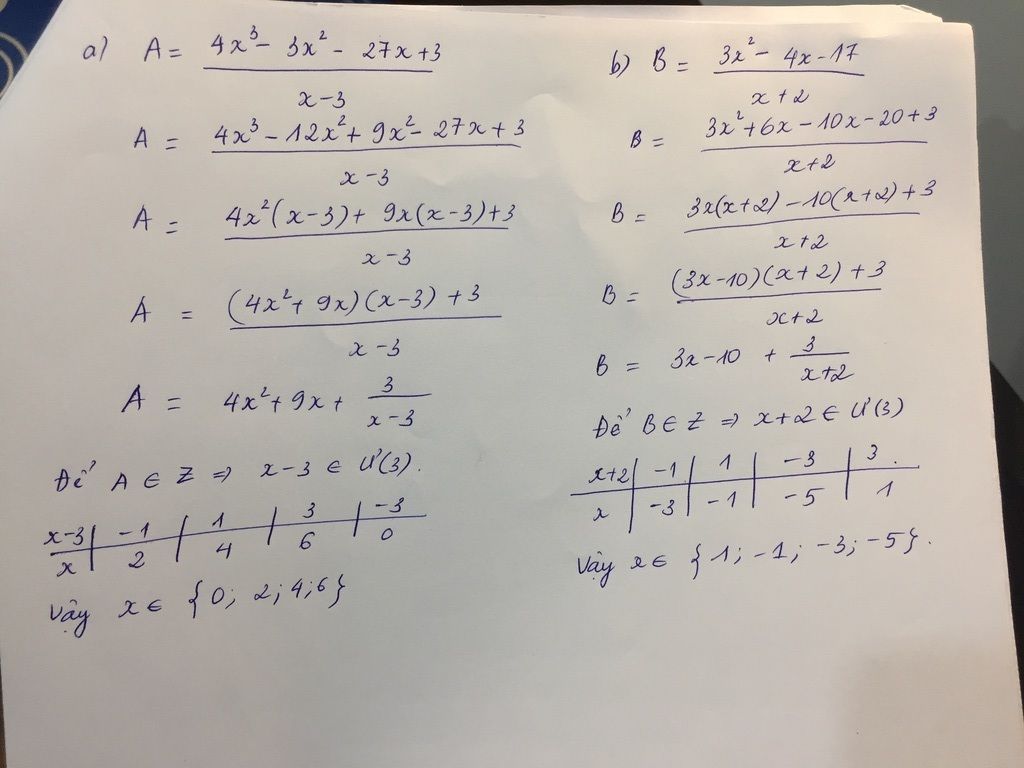 a) A = 4x³ - 3x² - 27x + 3
x - 3
A = 4x³ - 12x² + 9x² - 27x + 3
x - 3
A = 4x²(x - 3) + 9x(x - 3) + 3
x - 3
A = (4x² + 9x)(x - 3) + 3
x - 3
A = 4x² + 9x + 3
x - 3
Để A ∈ Z ⇒ x - 3 ∈ Ư(3).
x-3 | -1 | 1 | 3 | -3
x | 2 | 4 | 6 | 0
Vậy x ∈ {0; 2; 4; 6}
b) B = 3x² - 4x - 17
x + 2
B = 3x² + 6x - 10x - 20 + 3
x + 2
B = 3x(x+2) - 10(x+2) + 3
x + 2
B = (3x - 10)(x + 2) + 3
x + 2
B = 3x - 10 + 3
x + 2
Để B ∈ Z ⇒ x + 2 ∈ Ư(3)
x+2 | -1 | 1 | -3 | 3.
x | -3 | -1 | -5 | 1
Vậy x ∈ {1; -1; -3; -5}.